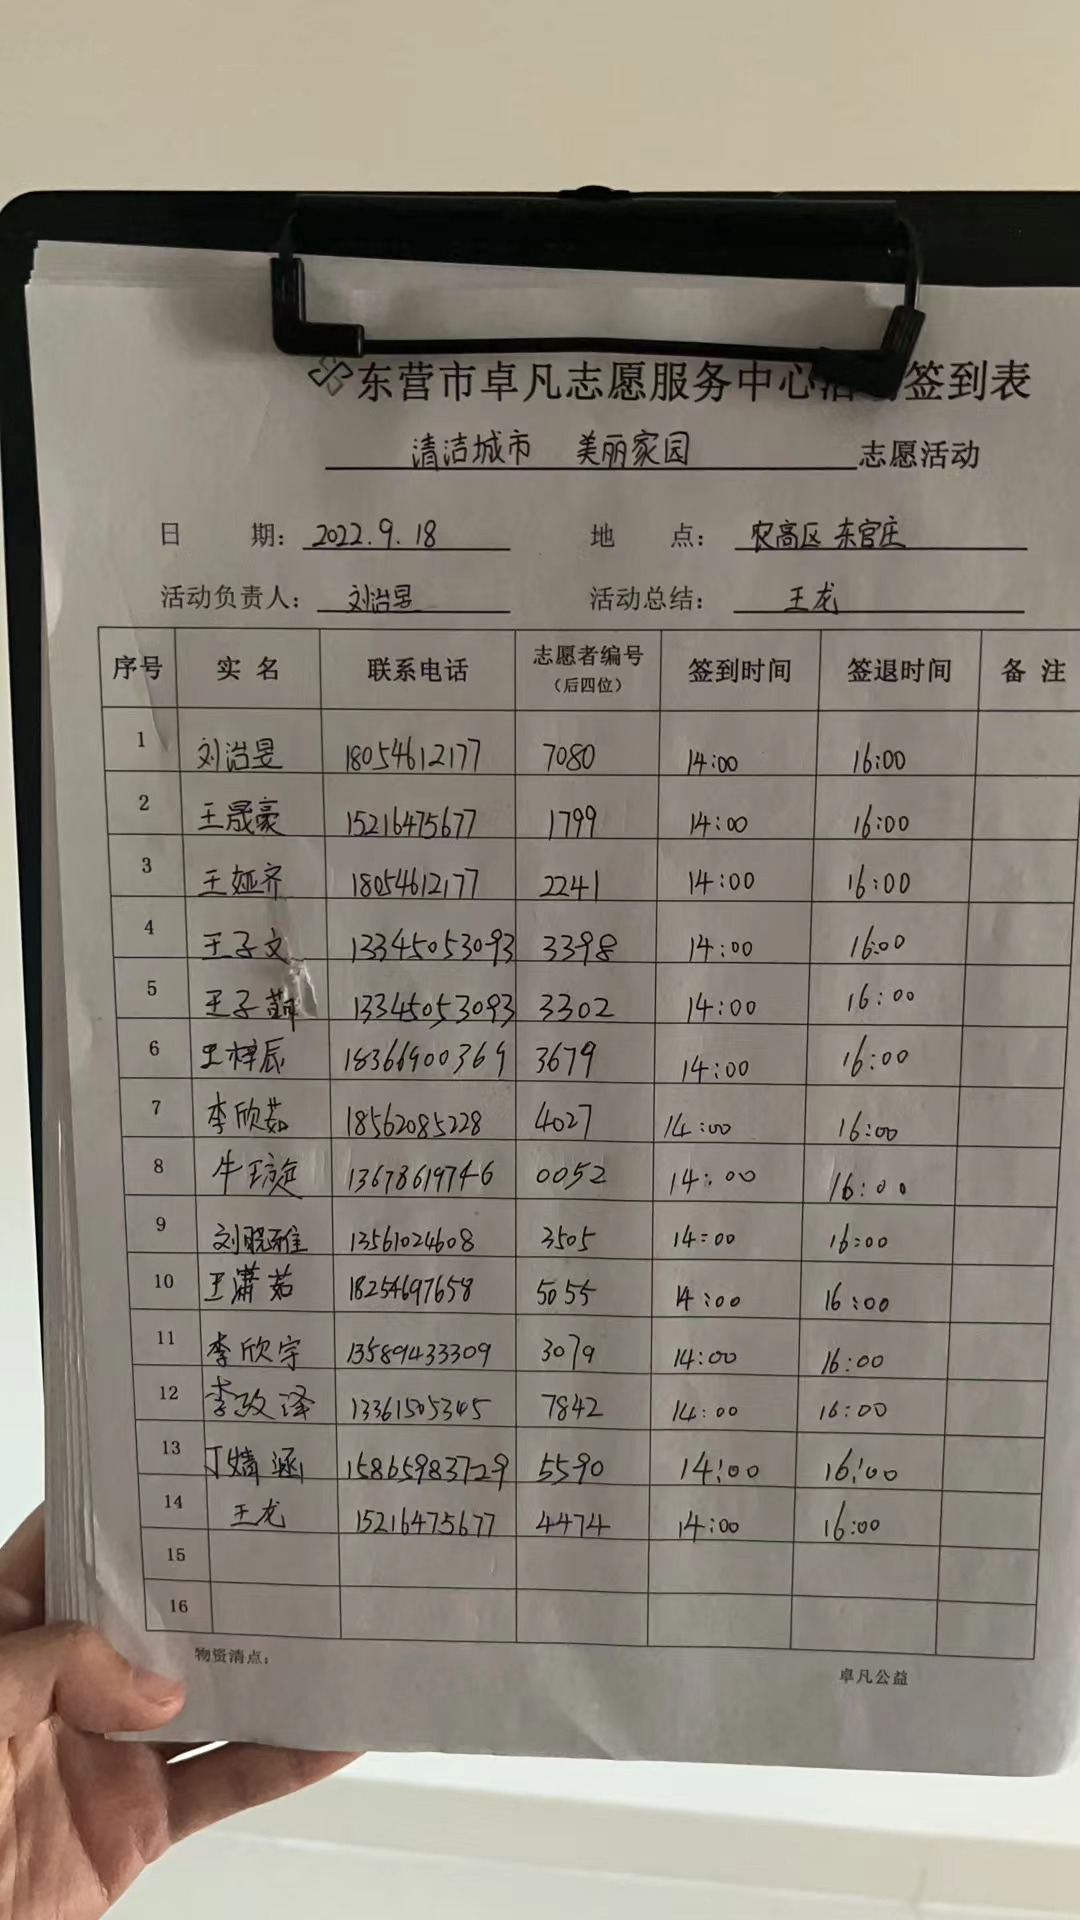 东营市卓凡志愿服务中心活动签到表
清洁城市 美丽家园 志愿活动
日 期： 2022.9.18 地 点： 农高区 东官庄
活动负责人： 刘浩昱 活动总结： 王龙
序号 实 名 联系电话 志愿者编号（后四位） 签到时间 签退时间 备 注
1 刘浩昱 18054612177 7080 14:00 16:00
2 王晟豪 15216475677 1799 14:00 16:00
3 王娅齐 18054612177 2241 14:00 16:00
4 王子文 13345053093 3398 14:00 16:00
5 王子萌 13345053093 3302 14:00 16:00
6 王梓辰 18366900369 3679 14:00 16:00
7 李欣茹 18562085228 4027 14:00 16:00
8 牛琁 13678619746 0052 14:00 16:00
9 刘晓雅 13561024608 3505 14:00 16:00
10 王潇茹 18254697658 5055 14:00 16:00
11 李欣宇 13589433309 3079 14:00 16:00
12 李政泽 13361505345 7842 14:00 16:00
13 丁婧涵 15865983729 5590 14:00 16:00
14 王龙 15216475677 4474 14:00 16:00
15
16
物资清点： 卓凡公益